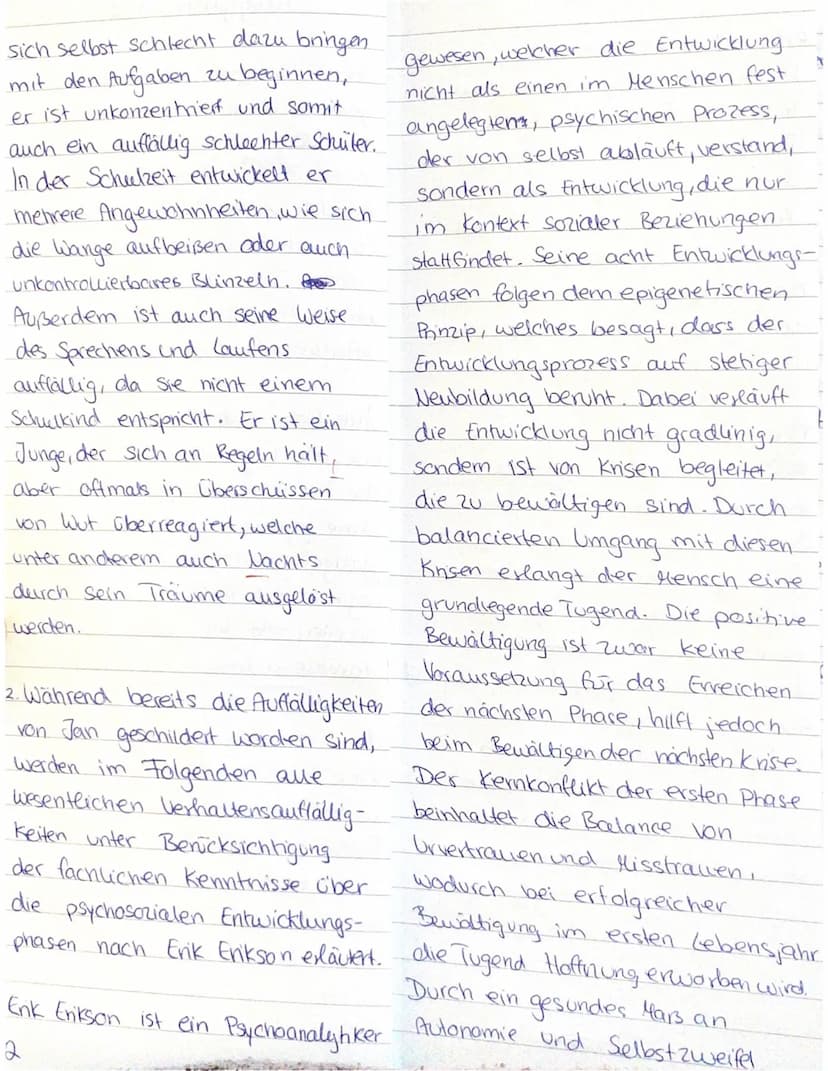 sich selbst schlecht dazu bringen
mit den Aufgaben zu beginnen,
er ist unkonzentriert und somit
auch ein auffällig schlechter Schüler.
In der Schulzeit entwickelt er
mehrere Angewohnheiten, wie sich
die Wange aufbeißen oder auch
unkontrollierbares Blinzeln.
Außerdem ist auch seine Weise
des Sprechens und Laufens
auffällig, da sie nicht einem
Schulkind entspricht. Er ist ein
Junge, der sich an Regeln hält,
aber oftmals in Überschüssen
von Wut überreagiert, welche
unter anderem auch Nachts
durch sein Träume ausgelöst
werden.
2. Während bereits die Auffälligkeiten
von Jan geschildert worden sind,
werden im Folgenden alle
wesentlichen Verhaltensauffällig-
keiten unter Berücksichtigung
der fachlichen Kenntnisse über
die psychosozialen Entwicklungs-
phasen nach Erik Erikson erläutert.
Erik Erikson ist ein Psychoanalytiker
2
gewesen, welcher die Entwicklung
nicht als einen im Menschen fest
angelegten, psychischen Prozess,
der von selbst abläuft, verstand,
sondern als Entwicklung, die nur
im Kontext sozialer Beziehungen
stattfindet. Seine acht Entwicklungs-
phasen folgen dem epigenetischen
Prinzip, welches besagt, dass der
Entwicklungsprozess auf stetiger
Neubildung beruht. Dabei verläuft
die Entwicklung nicht gradlinig,
sondern ist von Krisen begleitet,
die zu bewältigen sind. Durch
balancierten Umgang mit diesen
Krisen erlangt der Mensch eine
grundlegende Tugend. Die positive
Bewältigung ist zwar keine
Voraussetzung für das Erreichen
der nächsten Phase, hilft jedoch
beim Bewältigen der nächsten Krise.
Der Kernkonflikt der ersten Phase
beinhaltet die Balance von
Urvertrauen und Misstrauen,
wodurch bei erfolgreicher
Bewältigung im ersten Lebensjahr
die Tugend Hoffnung erworben wird.
Durch ein gesundes Mars an
Autonomie und Selbstzweifel